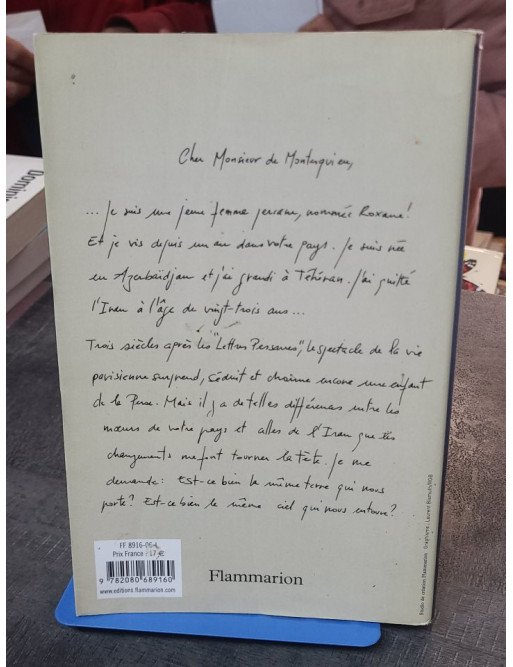 Cher Monsieur de Montesquieu,
... Je suis une jeune femme persane, nommée Roxane!
Et je vis depuis un an dans votre pays. Je suis née
en Azerbaïdjan et j'ai grandi à Téhéran. J'ai quitté
l'Iran à l'âge de vingt-trois ans...
Trois siècles après les "Lettres Persanes", le spectacle de la vie
parisienne surprend, séduit et charme encore une enfant
de la Perse. Mais il y a de telles différences entre les
mœurs de votre pays et celles de l'Iran que les
changements me font tourner la tête. Je me
demande : Est-ce bien la même terre qui nous
porte? Est-ce bien le même ciel qui nous entoure?
FF 8916-06-I
Prix France : 17 €
9 782080 689160
www.editions.flammarion.com
Flammarion
Studio de création Flammarion
Domini